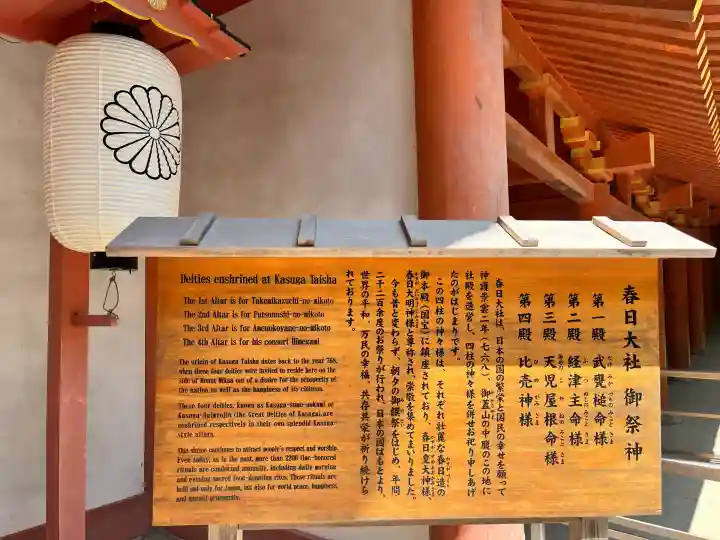 Deities enshrined at Kasuga Taisha
The 1st Altar is for Takemikazuchi-no-mikoto
The 2nd Altar is for Futsunushi-no-mikoto
The 3rd Altar is for Amenokoyane-no-mikoto
The 4th Altar is for his consort Himegami
The origin of Kasuga Taisha dates back to the year 768,
when these four deities were invited to reside here on the
side of Mount Mikasa out of a desire for the prosperity of
the nation as well as the happiness of its citizens.
These four deities, known as Kasuga-sume-ookami or
Kasuga-daimyojin (the Great Deities of Kasuga) are
enshrined respectively in their own splendid Kasuga-
style altars.
This shrine continues to attract people's respect and worship.
Even today, as in the past, more than 2200 time-honored
rituals are conducted annually, including daily morning
and evening sacred food-donating rites. These rituals are
held not only for Japan, but also for world peace, happiness,
and mutual-prosperity.
春日大社 御祭神
第一殿 武甕槌命様
第二殿 経津主命様
第三殿 天児屋根命様
第四殿 比売神様
春日大社は、日本の国の繁栄と国民の幸せを願って
神護景雲二年(七六八)、御蓋山の中腹のこの地に
社殿を造営し、四柱の神々様を併せお祀り申しあげ
たのがはじまりです。
この四柱の神々様は、それぞれ壮麗な春日造の
御本殿(国宝)に鎮座されており、春日皇大神様
春日大明神様と尊称され、崇敬を集めてまいりました。
今も昔と変わらず、朝夕の御饌祭をはじめ、年間
二千二百余度のお祭りが行われ、日本の国はもとより、
世界の平和、万民の幸福、共存共栄が祈り続けら
れております。